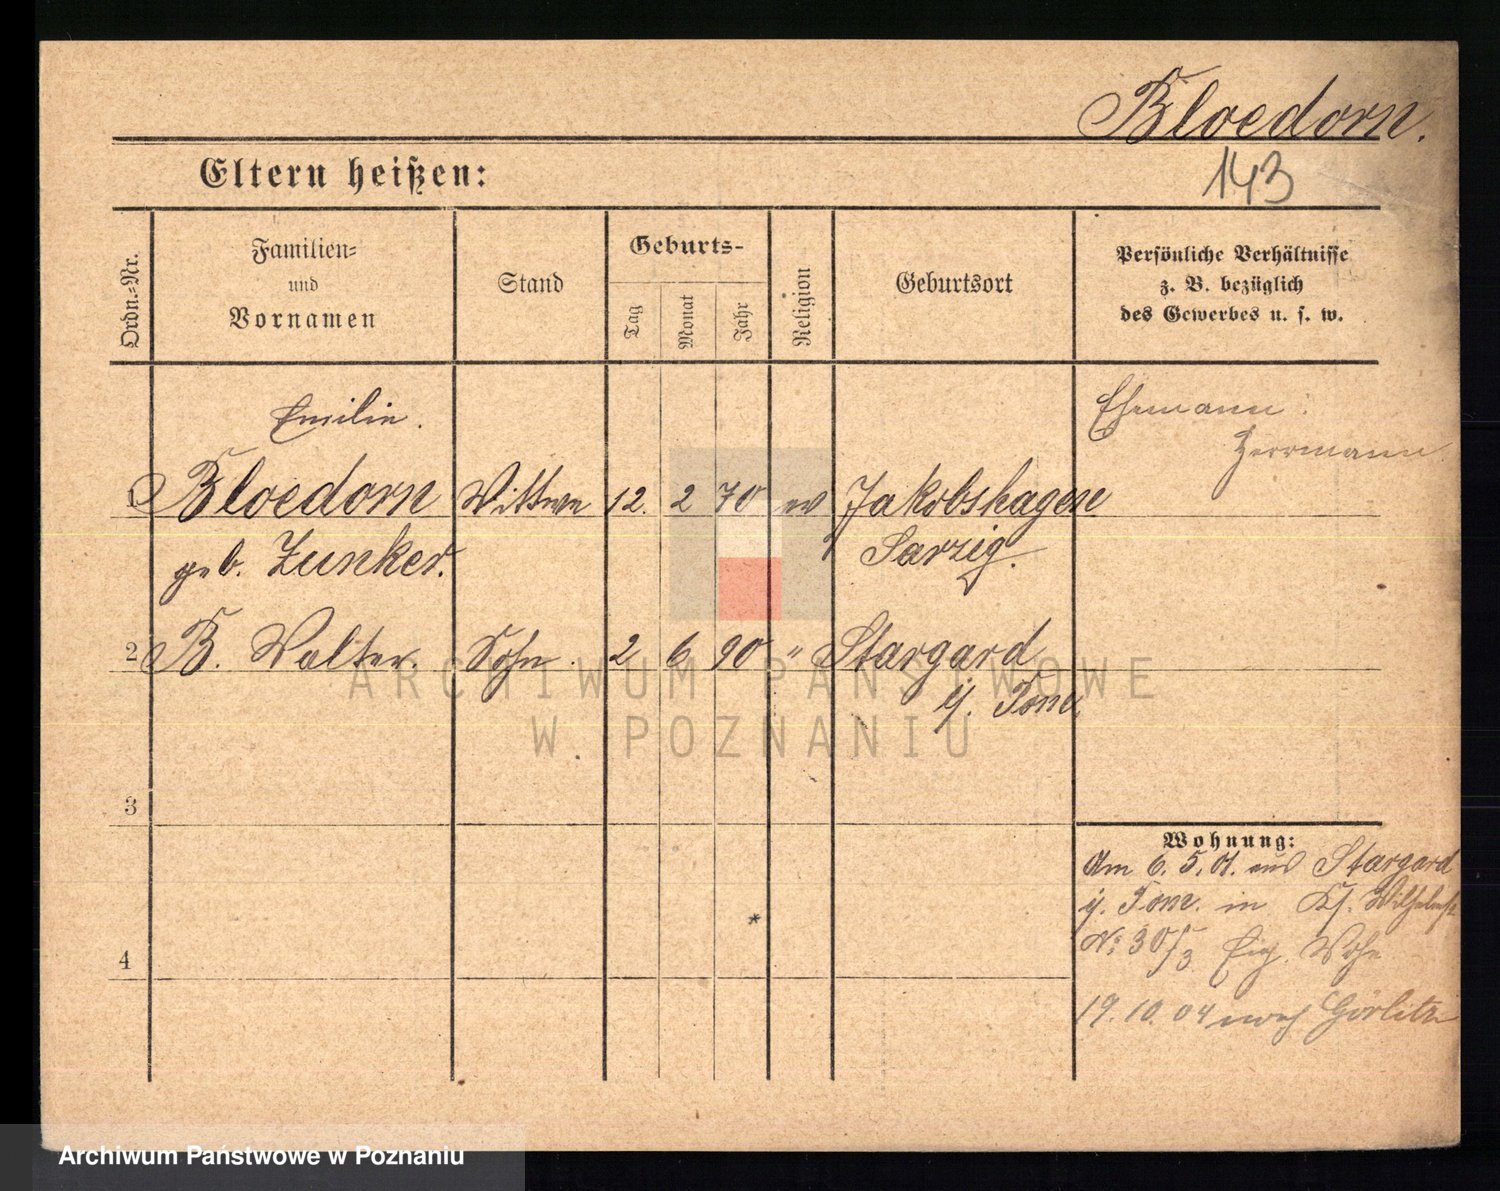 Bloedorn.
143
Eltern heißen:
Ordn.-Nr.
Familien-
und
Vornamen
Stand
Geburts-
Tag
Monat
Jahr
Religion
Geburtsort
Persönliche Verhältnisse
z. B. bezüglich
des Gewerbes u. s. w.
Emilie.
Ehemann:
Herrmann
1 Bloedorn Wittwe 12. 2 70 ev Jakobshagen
geb. Zunker. Sarzig.
2 B. Walter. Sohn. 2 6 90 " Stargard
i/. Pom.
3
4
Wohnung:
Am 6. 5. 01. aus Stargard
i/. Pom. in Kl. Wilhelmst
No 30/3 Eig. Wohn
19. 10. 04 nach Görlitz
ARCHIWUM PAŃSTWOWE
W POZNANIU
Archiwum Państwowe w Poznaniu